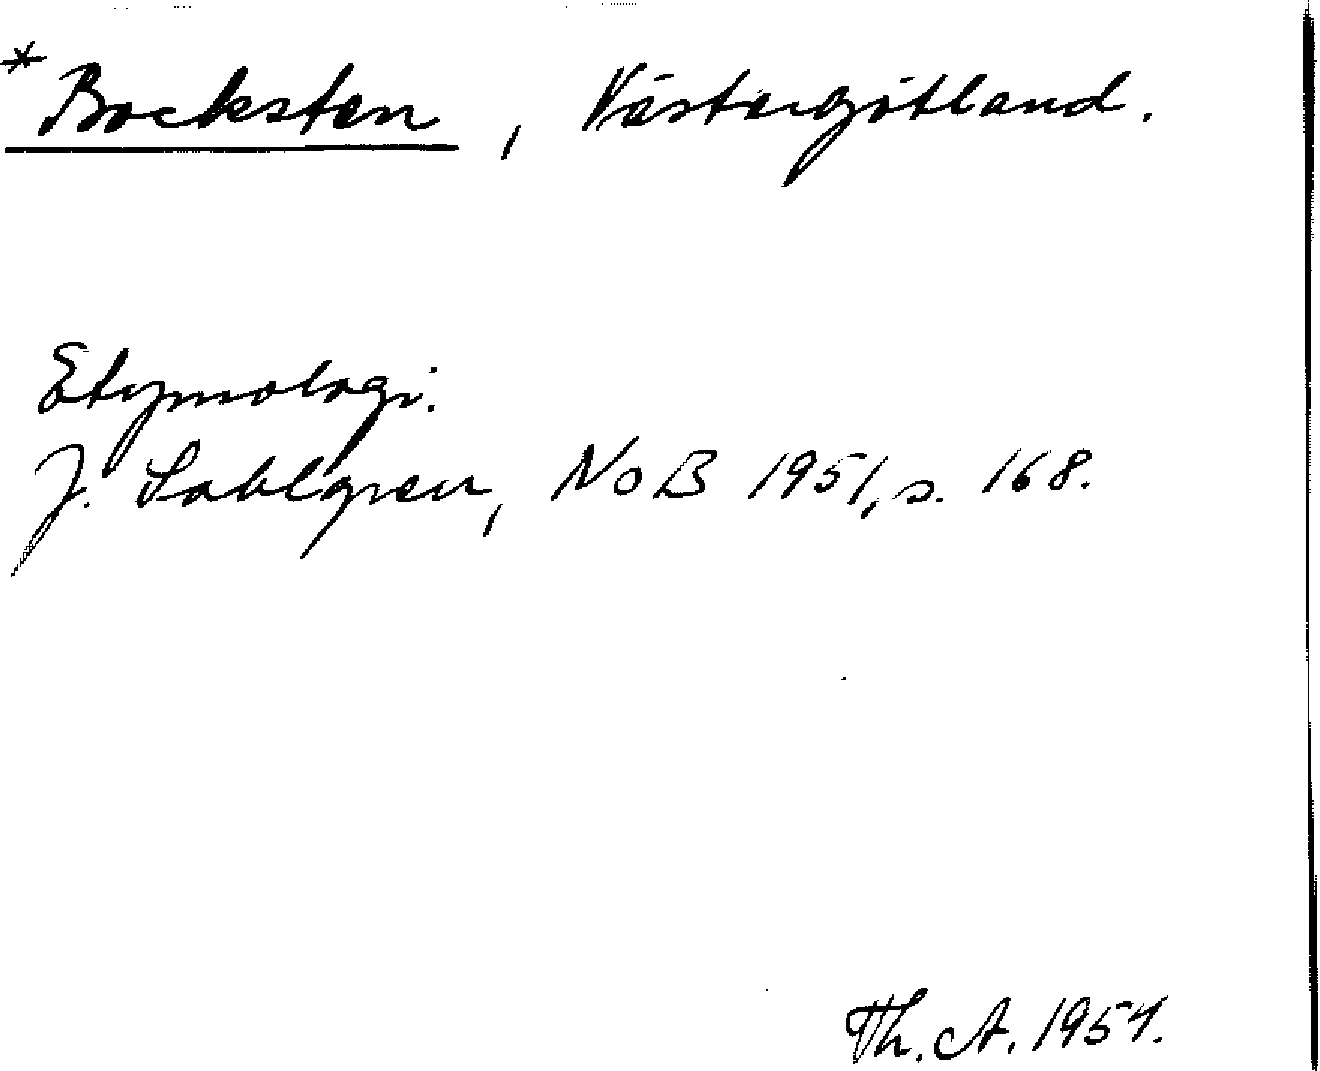 * Bocksten, Västergötland.
Etymologi:
J. Sahlgren, NoB 1951, s. 168.
Th. A. 1954.